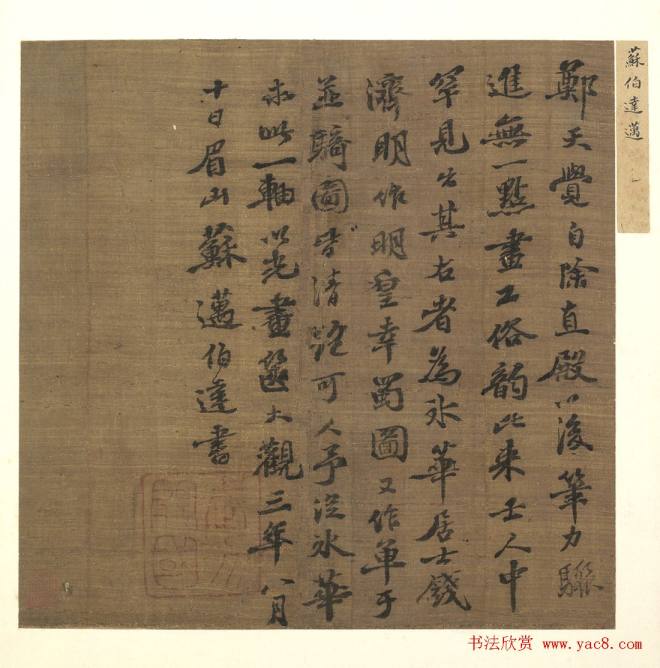 蘇伯達邁
鄭天覺自除直殿以後筆力驟
進無一點畫工俗韵比來士人中
罕見出其右者為水華居士錢
濟明作明皇幸蜀圖又作單于
並騎圖皆清駃可人予從水華
求此一軸以光畫篋大觀三年八月
十日眉山蘇邁伯達書
书法欣赏 www.yac8.com